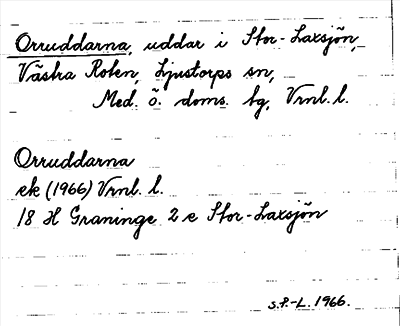 Orruddarna, uddar i Stor-Laxsjön,
Västra Roten, Ljustorps sn,
Med. ö. doms. tg, Vrnl. l.
Orruddarna
ek (1966) Vrnl. l.
18 H Graninge 2 e Stor-Laxsjön
S.P.-L. 1966.